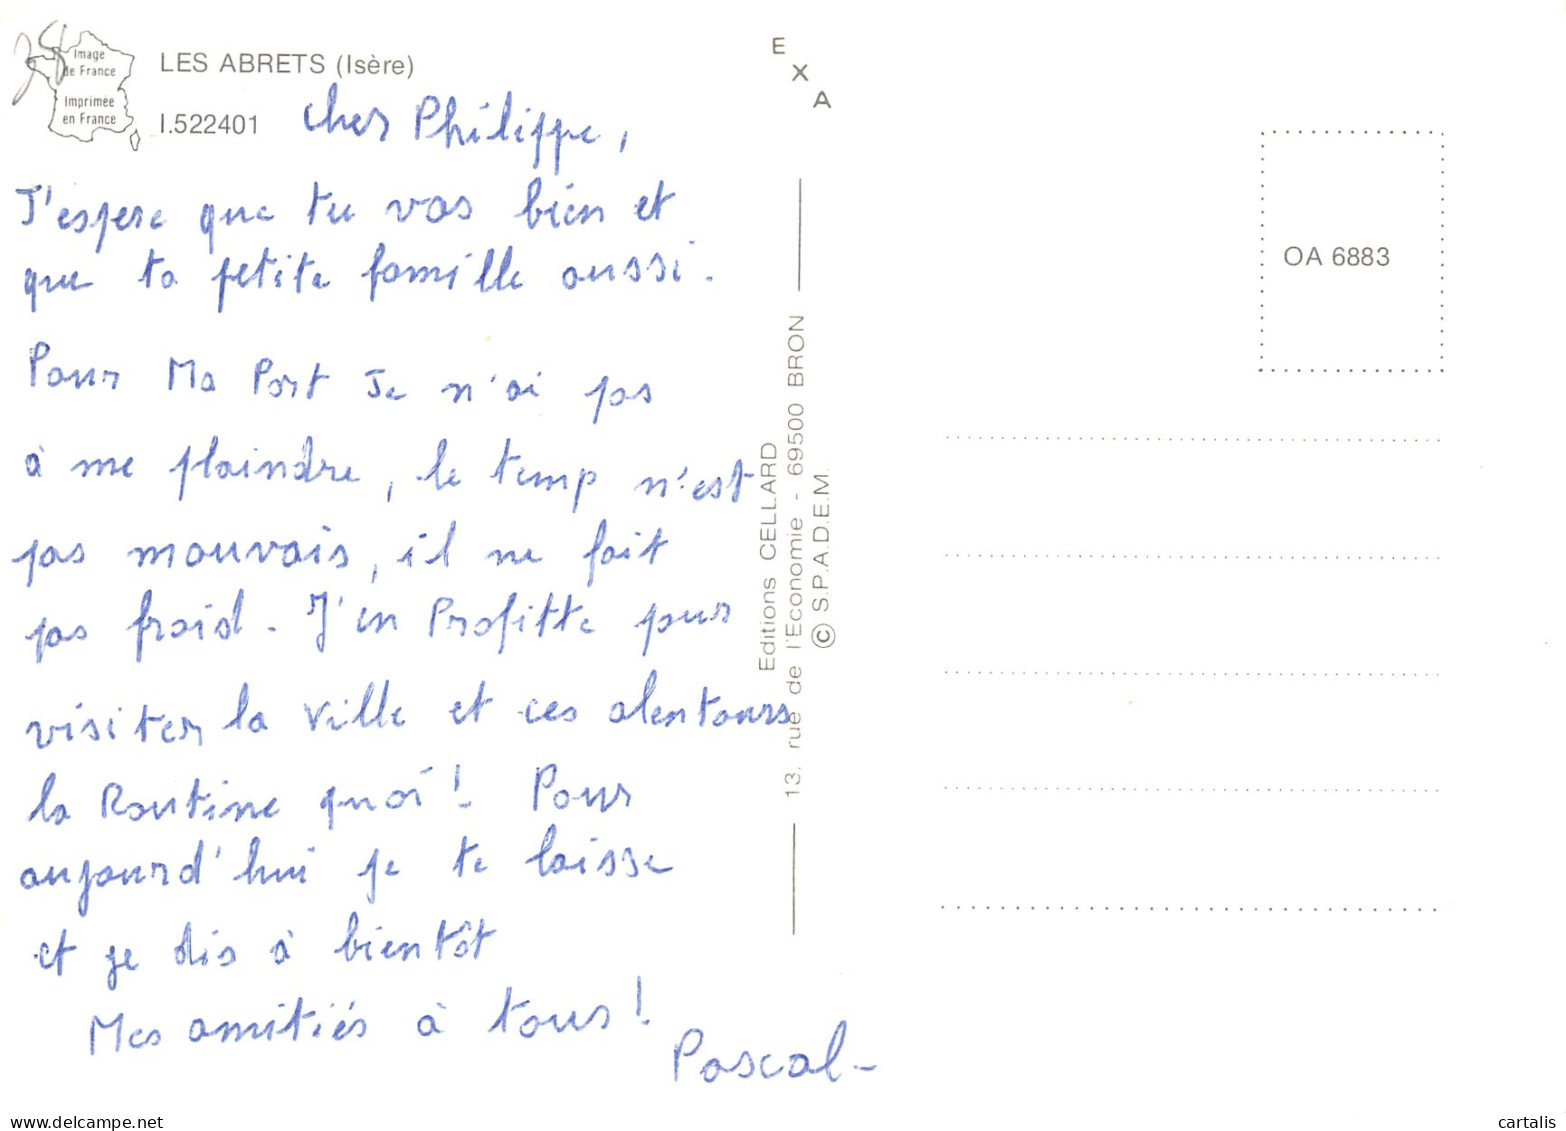 38
Image
de France
Imprimée
en France
LES ABRETS (Isère)
I.522401
Cher Philippe,
J'espere que tu vas bien et
que ta petite famille aussi.
Pour Ma Part Je n'ai pas
à me plaindre, le temp n'est
pas mauvais, il ne fait
pas froid. J'en Profitte pour
visiter la ville et ces alentours
la Routine quoi! Pour
aujourd'hui je te laisse
et je dis à bientôt
Mes amitiés à tous!
Pascal-
EXA
Editions CELLARD
13, rue de l'Economie - 69500 BRON
© S.P.A.D.E.M.
OA 6883
www.delcampe.net
cartalis